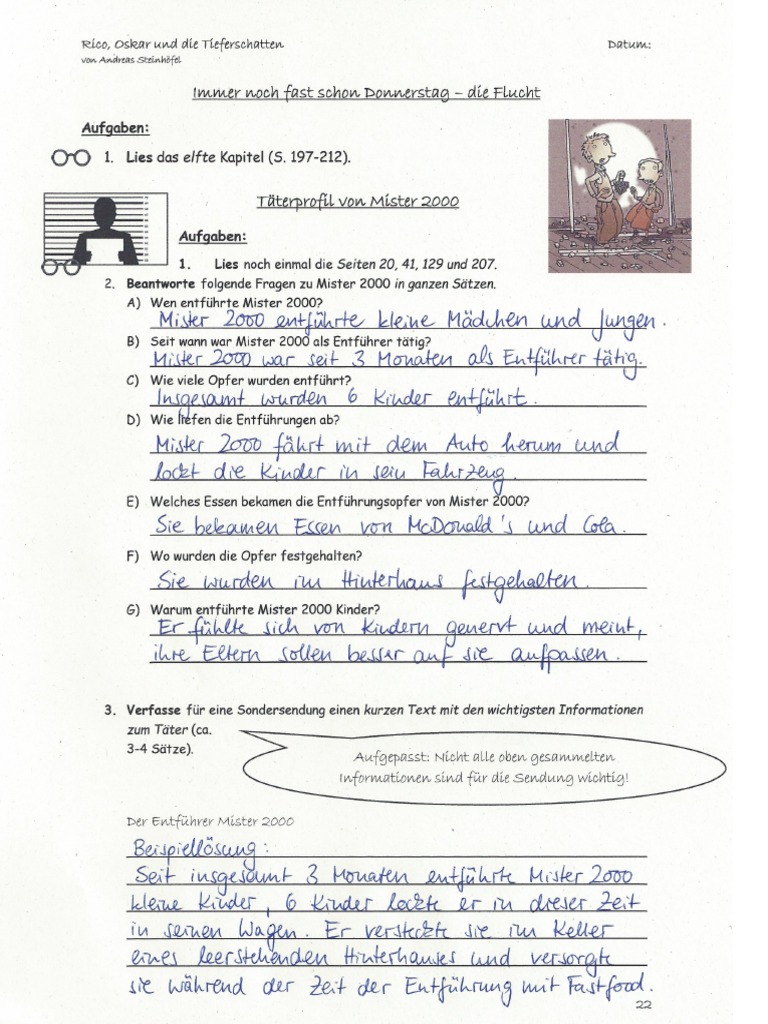 Rico, Oskar und die Tieferschatten Datum:
von Andreas Steinhöfel
Immer noch fast schon Donnerstag – die Flucht
Aufgaben:
1. Lies das elfte Kapitel (S. 197-212).
Täterprofil von Mister 2000
Aufgaben:
1. Lies noch einmal die Seiten 20, 41, 129 und 207.
2. Beantworte folgende Fragen zu Mister 2000 in ganzen Sätzen.
A) Wen entführte Mister 2000?
Mister 2000 entführte kleine Mädchen und Jungen.
B) Seit wann war Mister 2000 als Entführer tätig?
Mister 2000 war seit 3 Monaten als Entführer tätig.
C) Wie viele Opfer wurden entführt?
Insgesamt wurden 6 Kinder entführt.
D) Wie liefen die Entführungen ab?
Mister 2000 fährt mit dem Auto herum und
lockt die Kinder in sein Fahrzeug.
E) Welches Essen bekamen die Entführungsopfer von Mister 2000?
Sie bekamen Essen von McDonald's und Cola.
F) Wo wurden die Opfer festgehalten?
Sie wurden im Hinterhaus festgehalten.
G) Warum entführte Mister 2000 Kinder?
Er fühlte sich von Kindern genervt und meint,
ihre Eltern sollen besser auf sie aufpassen.
3. Verfasse für eine Sondersendung einen kurzen Text mit den wichtigsten Informationen
zum Täter (ca.
3-4 Sätze).
Aufgepasst: Nicht alle oben gesammelten
Informationen sind für die Sendung wichtig!
Der Entführer Mister 2000
Beispiellösung:
Seit insgesamt 3 Monaten entführte Mister 2000
kleine Kinder, 6 Kinder lockte er in dieser Zeit
in seinen Wagen. Er versteckte sie im Keller
eines leerstehenden Hinterhauses und versorgte
sie während der Zeit der Entführung mit Fastfood.
22